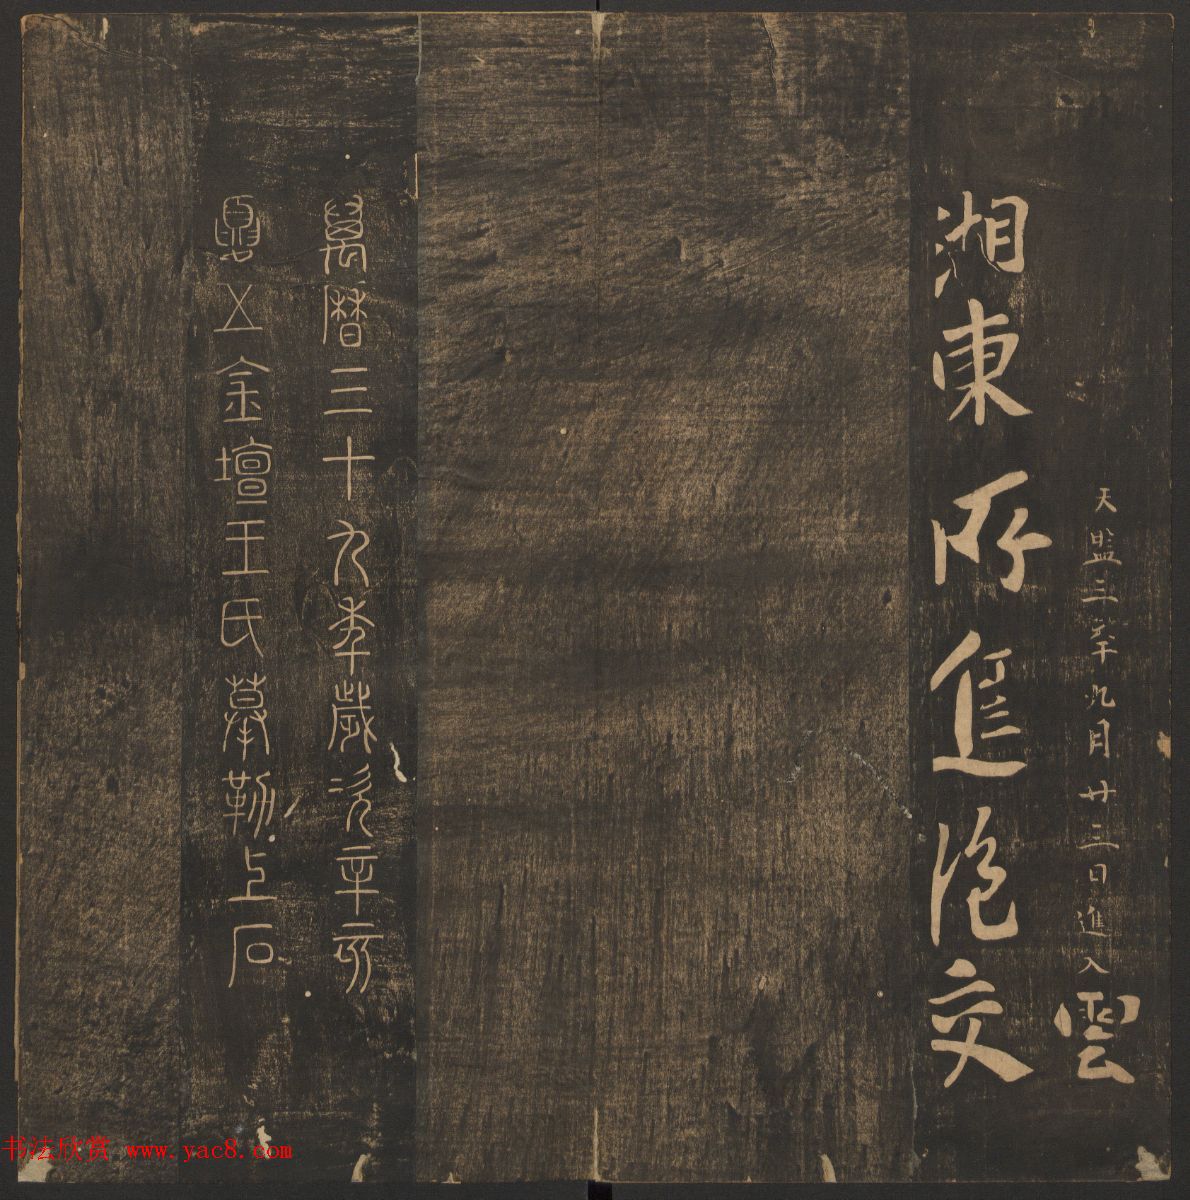 天監三年九月廿三日進入
雲
湘東所交
萬曆三十九年歲次辛亥
夏五金壇王氏摹勒上石
书法欣赏 www.yac8.com